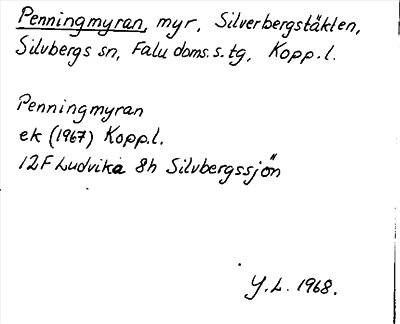 Penningmyran, myr, Silverbergstäkten,
Silvbergs sn, Falu doms.s.tg, Kopp.l.
Penningmyran
ek (1967) Kopp.l.
12F Ludvika 8h Silvbergssjön
Y.L. 1968.